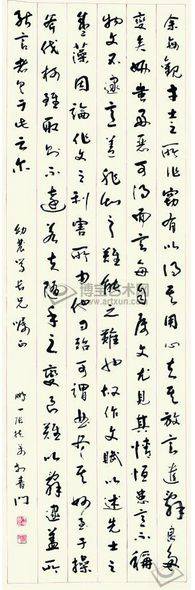 余每觀才士之所作竊有以得其用心夫其放言遣辭良多
變矣妍蚩好惡可得而言每自屬文尤見其情恒患意不稱
物文不逮意蓋非知之難能之難也故作文賦以述先士之
盛藻因論作文之利害所由他日殆可謂曲盡其妙至于操
斧伐柯雖取則不遠若夫隨手之變良難以辭逮蓋所
能言者具于此云尔
長兄囑正